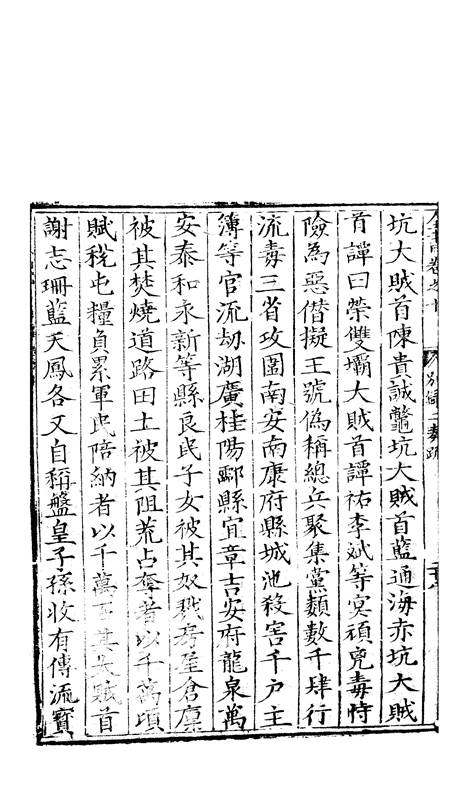 坑大賊首陳貴誠虌坑大賊首藍通海赤坑大賊
首譚曰榮雙壩大賊首譚祐李斌等冥頑兇毒恃
險為惡僭擬王號偽稱總兵聚集黨類數千肆行
流毒三省攻圍南安南康府縣城池殺害千戶主
簿等官流劫湖廣桂陽酃縣宜章吉安府龍泉萬
安泰和永新等縣良民子女被其奴戮房屋倉廩
被其焚燒道路田土被其阻荒占奪者以千萬頃
賦稅屯糧負累軍民陪納者以千萬石其大賊首
謝志珊藍天鳳各又自稱盤皇子孫收有傳流寳